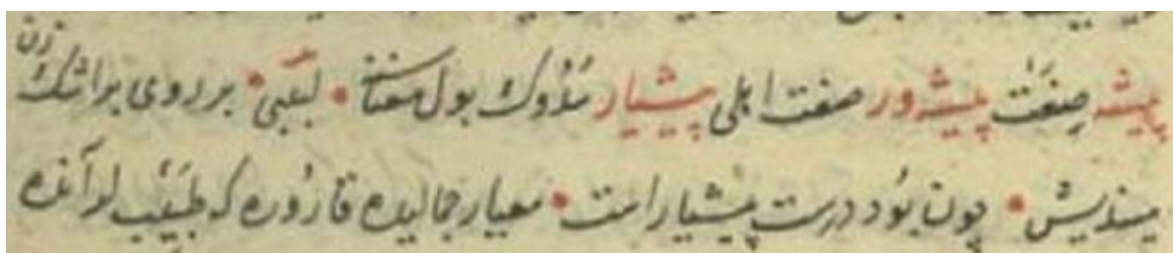 پیشه صنعت پیشه‌ور صنعت اهلی پیشیار بول معناسنه لبیبی بر روی براشك زن
میندیش چون بود درست پیشیارت معیار جمالیده قاروره که طبیب لر آنده